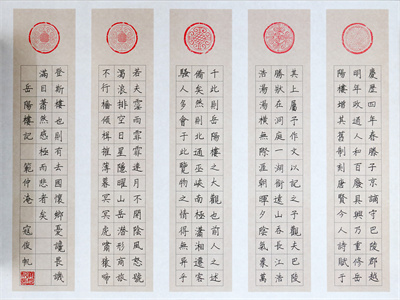 慶曆四年春滕子京謫守巴陵郡越
明年政通人和百廢具興乃重修岳
陽樓增其舊制刻唐賢今人詩賦于
其上屬予作文以記之予觀夫巴陵
勝狀在洞庭一湖銜遠山吞長江浩
浩湯湯橫無際涯朝暉夕陰氣象萬
千此則岳陽樓之大觀也前人之述
備矣然則北通巫峽南極瀟湘遷客
騷人多會于此覽物之情得無異乎
若夫霪雨霏霏連月不開陰風怒號
濁浪排空日星隱曜山岳潛形商旅
不行檣傾楫摧薄暮冥冥虎嘯猿啼
登斯樓也則有去國懷鄉憂讒畏譏
滿目蕭然感極而悲者矣
岳陽樓記 範仲淹 寇俊帆